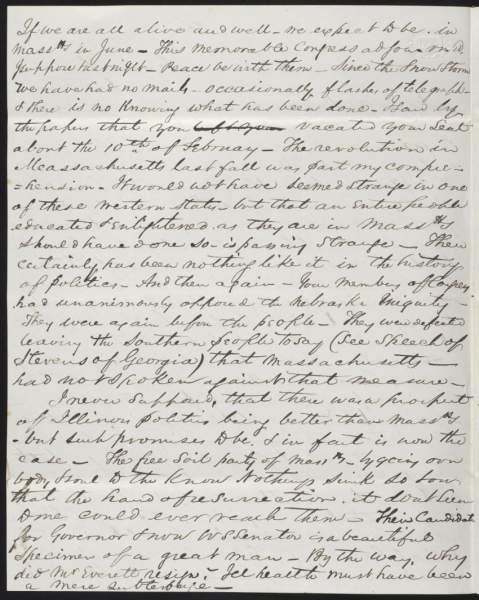 If we are all alive and well - we expect to be in
Massts in June - This memorable Congress adjourned
I suppose last night - Peace be with them - Since the Snow Storm
we have had no mails - occasionally flashes of telegraph -
& there is no Knowing what has been done - I saw by
the papers that you vacated your Seat
about the 10th of February - The revolution in
Massachusetts last fall was past my compre=
=hension - It would not have seemed strange in one
of these western States - but that an entire people
educated & Enlightened as they are in Massts
should have done so - is passing strange - There
certainly has been nothing like it in the history
of politics - And then again - Your members of Congress
had unanimously opposed the Nebraska iniquity -
They were again before the people - They were defeated
leaving the Southern people to say (See Speech of
Stevens of Georgia) that Massachusetts -
had not spoken against that measure -
I never supposed, that there was a prospect
of Illinois politics being better than Massts
- but such promises to be & in fact is now the
case - The free Soil party of Massts - by
body & soul to the Know Nothings sunk so low
that the hand of resurrection it does seem
to me could ever reach them - Their Candidate
for Governor & now US Senator is a beautiful
Specimen of a great man - By the way, why
did Mr Everett resign? Ill health must have been
a mere subterfuge -